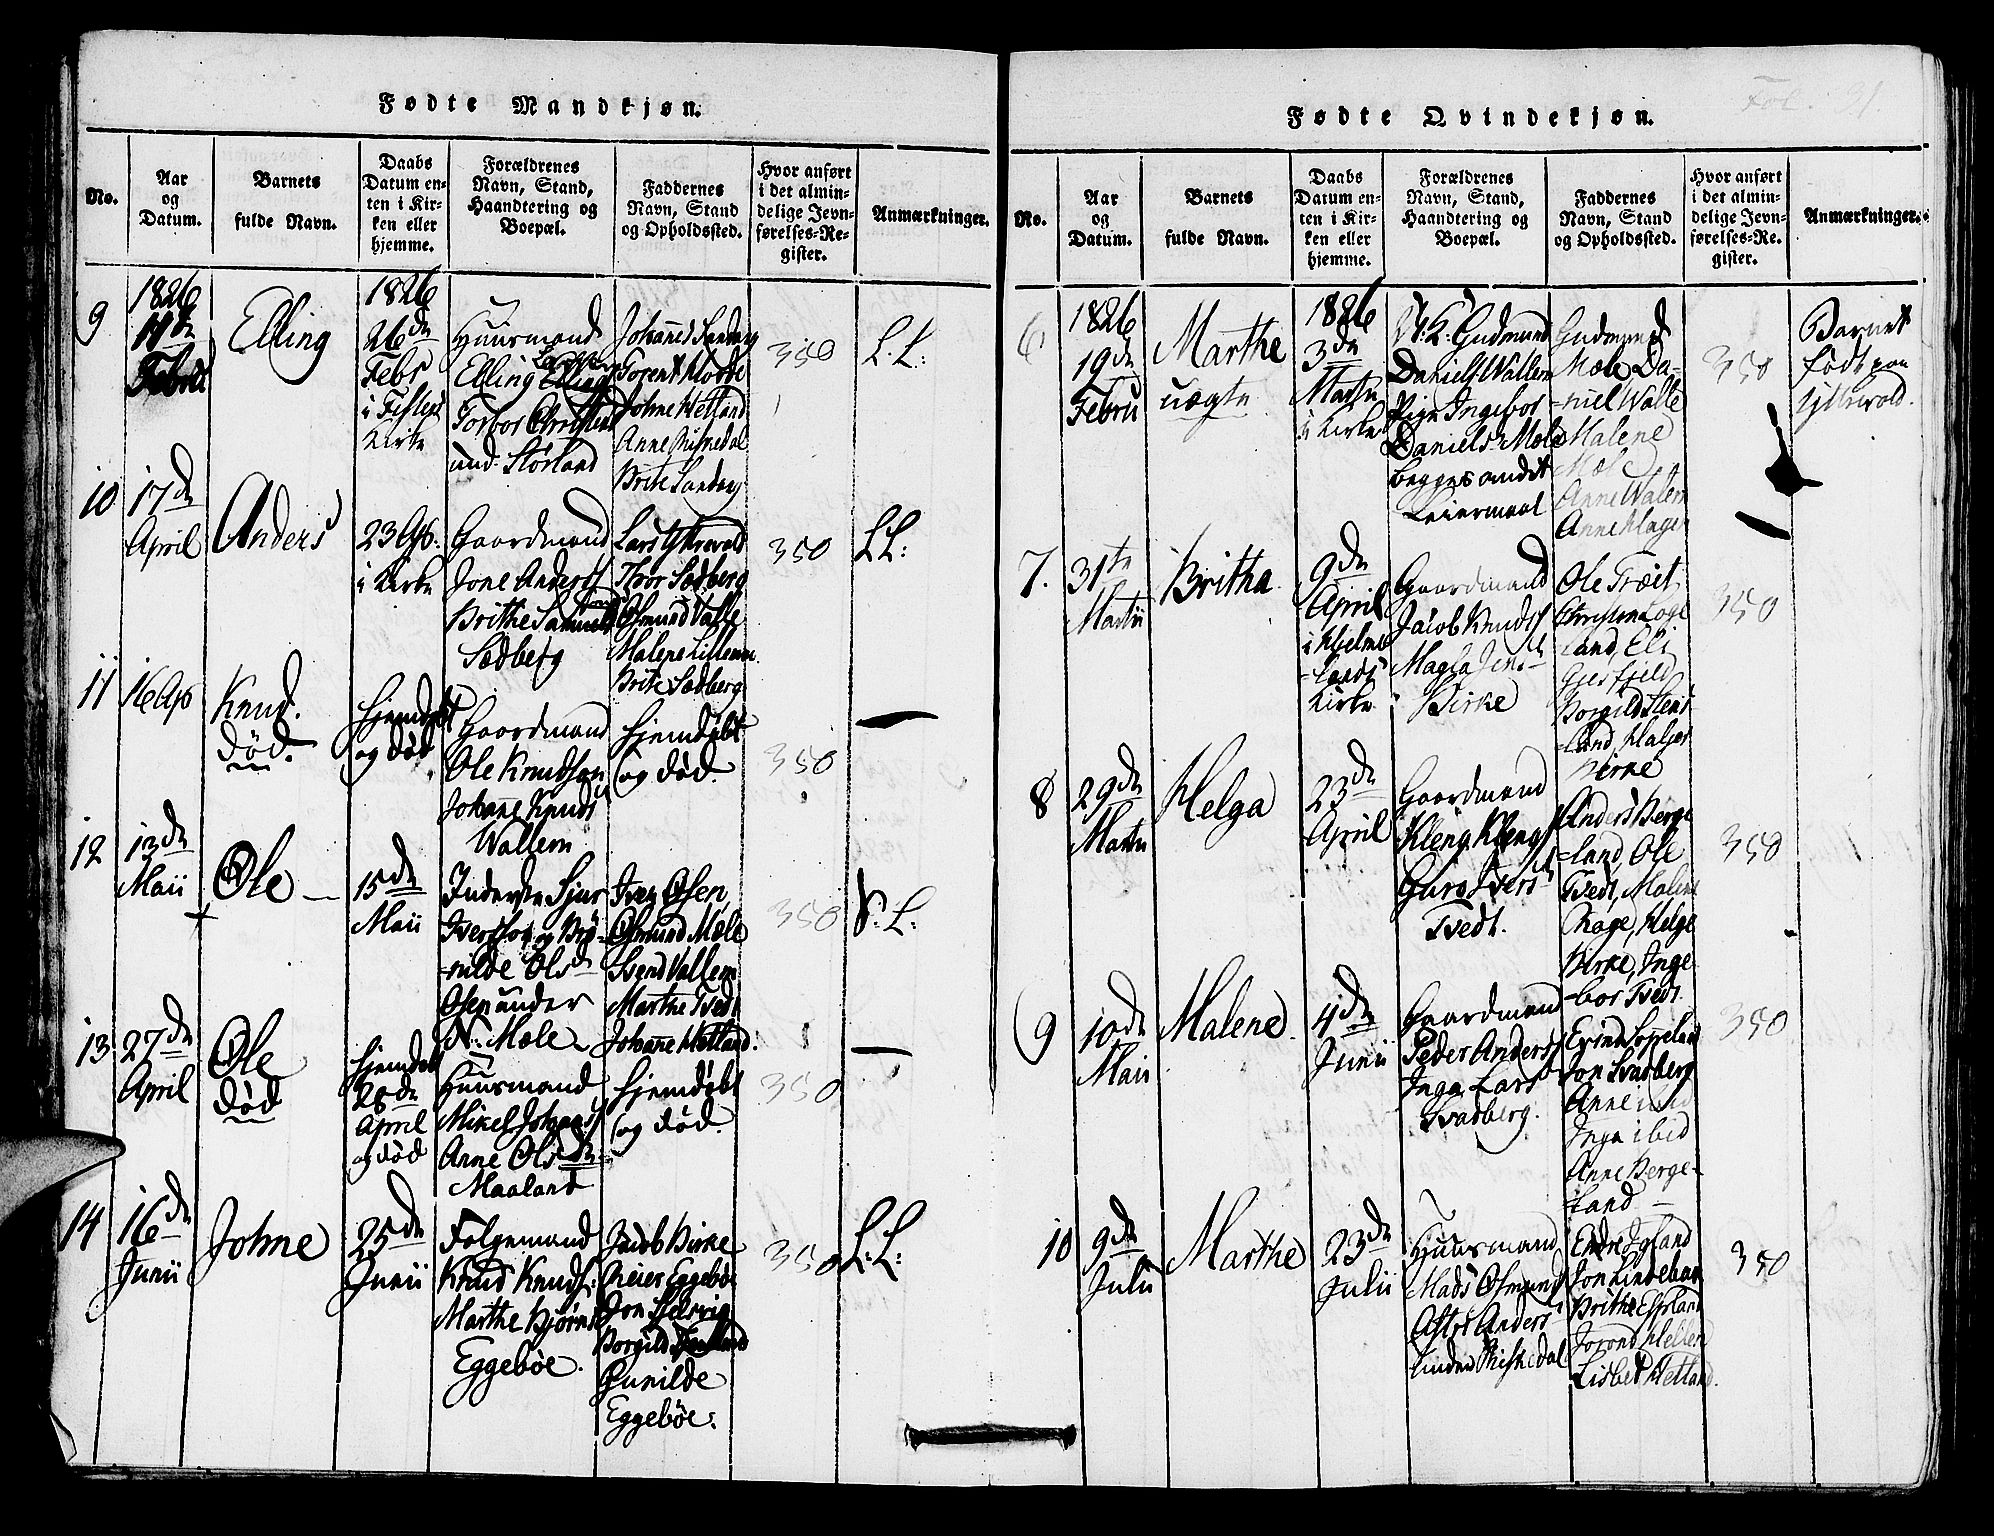 Fødte Mandkjøn.
No.
Aar
og
Datum.
Barnets
fulde Navn.
Daabs
Datum en-
ten i Kir-
ken eller
hjemme.
Forældrenes
Navn, Stand,
Haandtering og
Boepæl.
Faddernes
Navn, Stand
og Opholdssted.
Hvor anført
i det almin-
delige Jevn-
førelses-Re-
gister.
Anmærkninger.
9
1826
11de
Febrii
Elling
1826
26de
Febr
i
Kirke
Huusmand
Elling
Torbor
und. Størland
Johannes Sandøy
Torent
Johne Hetland
Anne
Brite Sandøy
350
L. L:
10
17de
April
Anders
23 Ap.
i Kirke
Gaardmand
Jone Anders
Brithe Samuels
Sædberg
Lars Ytrevold
Thor Sædberg
Osmund Valle
Malene
Brite Sædberg
350
L.L:
11
16 Ap
Knud.
død.
Hjemdøbt
og død
Gaardmand
Ole Knudson
Johane Knuds
Wallem
Hjemdøbt
og død.
350
12
13de
Maii
Ole
15de
Maii
Inderste Sjur
Iversson og Brø-
-nilde Ols
Osen under
N. Mæle
Iver Osen
Osmund Mæle
Svend Vallem
Marthe Tvedt
Johane Hetland.
350
L:
13
27de
April
Ole
død
Hjemdøbt
28de
April
og død
Huusmand
Mikel Johans
Anne Ols
Maaland
Hjemdøbt
og død.
350
14
16de
Junii
Johne
25de
Junii
Følgemand
Knud Knuds:
Marthe Bjørns
Eggebøe.
Jacob Birke
Reier Eggebøe
Jon
Borgild
Gunilde
Eggebøe.
350
L: L:
Fødte Qvindekjøn.
Fol. 31.
No.
Aar
og
Datum.
Barnets
fulde Navn.
Daabs
Datum en-
ten i Kir-
ken eller
hjemme.
Forældrenes
Navn, Stand,
Haandtering og
Boepæl.
Faddernes
Navn, Stand
og Opholdssted.
Hvor anført
i det almin-
delige Jevn-
førelses-Re-
gister.
Anmærkninger.
6
1826
19de
Febrii
Marthe
uægte
1826
3de
Martii
i Kirke
Gudmund
Daniels. Wallem
Pige Ingebor
Daniels Mæle
begges andet
Leiermaal
Gudmund
Mæle Da-
-niel Walle
Malene
Mæle
Anne Walem
Anne
350
Barnet
født paa
Ytrevold.
7.
31te
Martii
Britha
9de
April
i Hjelme-
-lands
Kirke
Gaardmand
Jacob Knuds
Magla
Birke
Ole Træet
land, Eli
Gjerfjeld
Borgild
-land,
Birke
350
8
29de
Martii
Helga
23de
April
Gaardmand
Kleng Klengs
Guro Ivers
Tvedt.
Anders Berge
-land, Ole
Tvedt, Malene
Rage, Helge
Birke, Inge
-bor Tvedt.
350
9
10de
Maii
Malene
4de
Junii
Gaardmand
Peder Anders
Inga Lars
Svadberg.
Jon Svadberg
Anne
Inga ibid
Anne Berge-
land
350
10
9de
Julii
Marthe
23de
Julii
Huusmand
Mads Osmund
Astri Anders
under Riskedal
Endre Igland
Jon Lindebak
Brithe
Jorond
Lisbet Hetland.
350